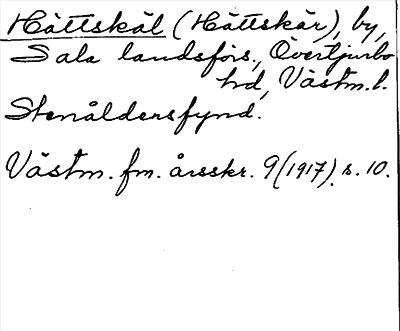 Håttskäl (Håttskär), by,
Sala landsförs., Övertjurbo
hd, Västm. l.
Stenåldersfynd.
Västm. fm. årsskr. 9 (1917). s. 10.